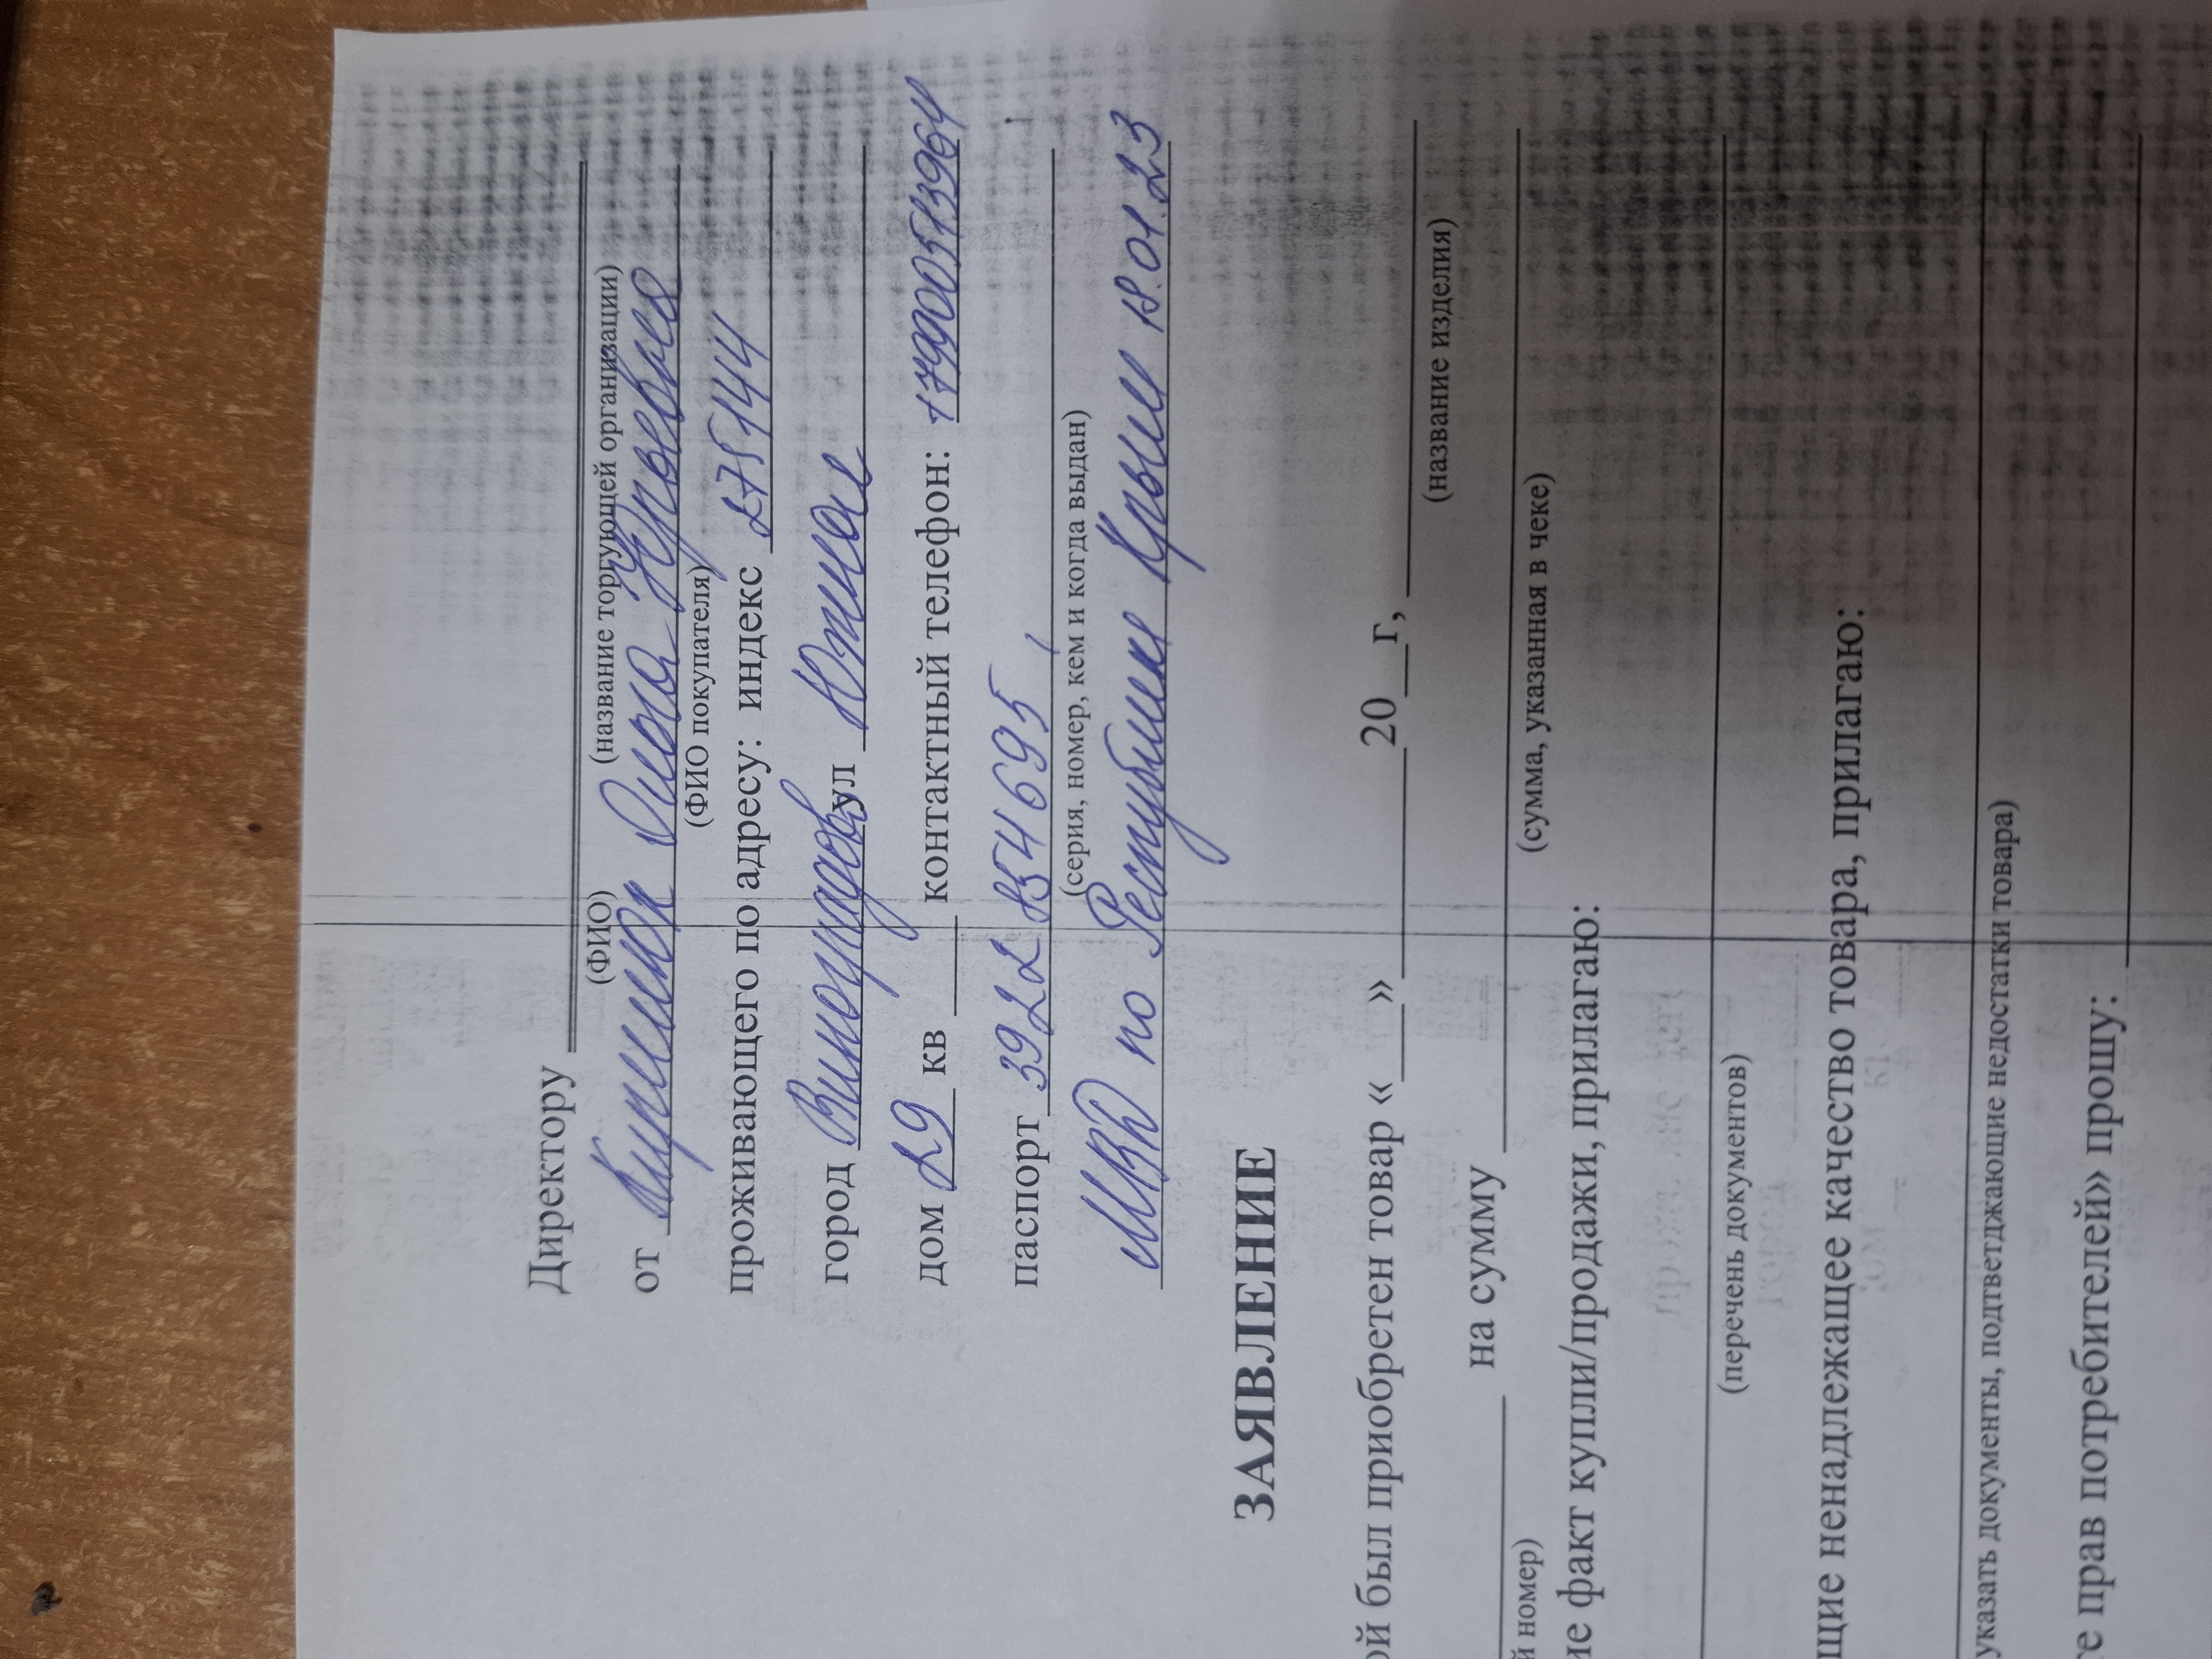 Директору
(ФИО) (название торгующей организации)
от Ольга Юрьевна
(ФИО покупателя)
проживающего по адресу: индекс 275144
город ул Южная
дом 29 кв ____ контактный телефон:
паспорт 3922 854695,
(серия, номер, кем и когда выдан)
МВД по Республике Крым 18.01.23
ЗАЯВЛЕНИЕ
ой был приобретен товар «___»________ 20__г,
(название изделия)
на сумму
й номер) (сумма, указанная в чеке)
ие факт купли/продажи, прилагаю:
(перечень документов)
щие ненадлежащее качество товара, прилагаю:
указать документы, подтветджающие недостатки товара)
е прав потребителей» прошу: